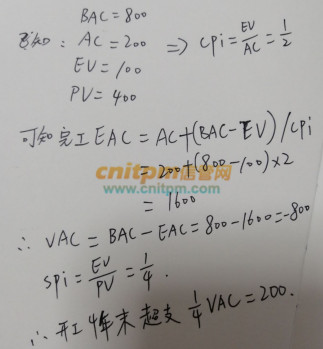 BAC=800
已知: AC=200 ⇒ cpi=EV/AC=1/2
EV=100
PV=400
可知完工EAC=AC+(BAC-EV)/cpi
=200+(800-100)×2
cnitpm信管网
www.cnitpm.com
=1600
∴ VAC=BAC-EAC=800-1600=-800
spi=EV/PV=1/4.
∴ 开工 年末超支 1/4 VAC=200.